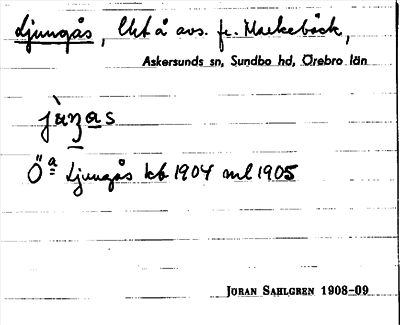 Ljungås, lht å avs. fr. Markebäck,
Askersunds sn, Sundbo hd, Örebro län
Öª Ljungås kb 1904 ml 1905
JÖRAN SAHLGREN 1908–09